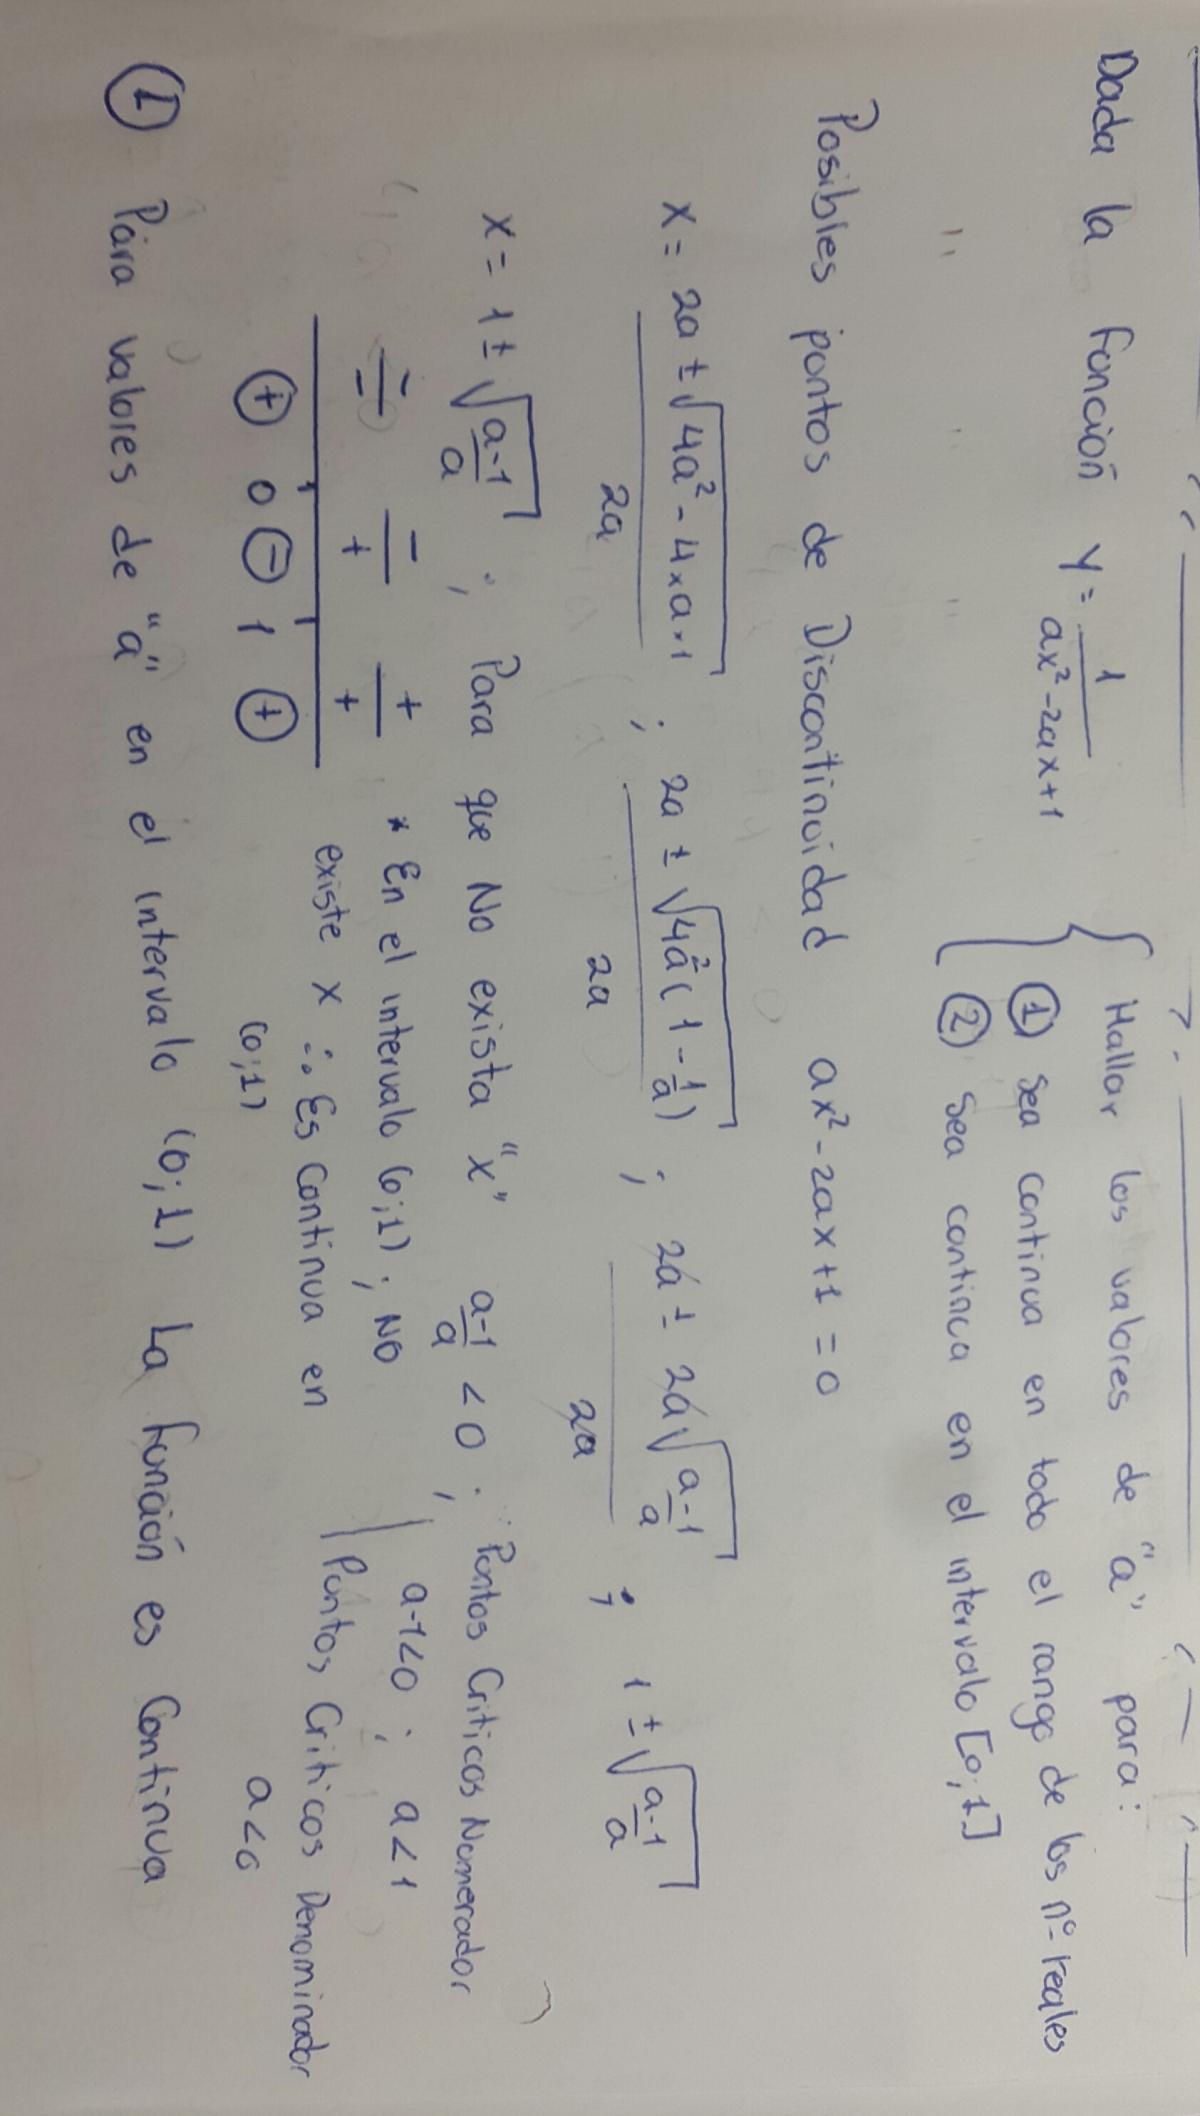 Dada la función y = 1/(ax² - 2ax + 1) { Hallar los valores de "a" para:
① Sea continua en todo el rango de los nº reales
② Sea continua en el intervalo [0;1]
Posibles puntos de Discontinuidad ax² - 2ax + 1 = 0
x = (2a ± √(4a² - 4×a×1))/2a ; (2a ± √(4a²(1 - 1/a)))/2a ; (2a ± 2a√((a-1)/a))/2a ; 1 ± √((a-1)/a)
x = 1 ± √((a-1)/a) ; Para que No exista "x" (a-1)/a < 0 ; Puntos Criticos Numerador
a-1<0 ; a<1
-/- -/+ +/+ * En el intervalo (0;1) ; NO
existe x ∴ Es Continua en
(0;1)
Puntos Criticos Denominador
a<0
⊕ 0 ⊖ 1 ⊕
① Para valores de "a" en el intervalo (0;1) La función es Continua